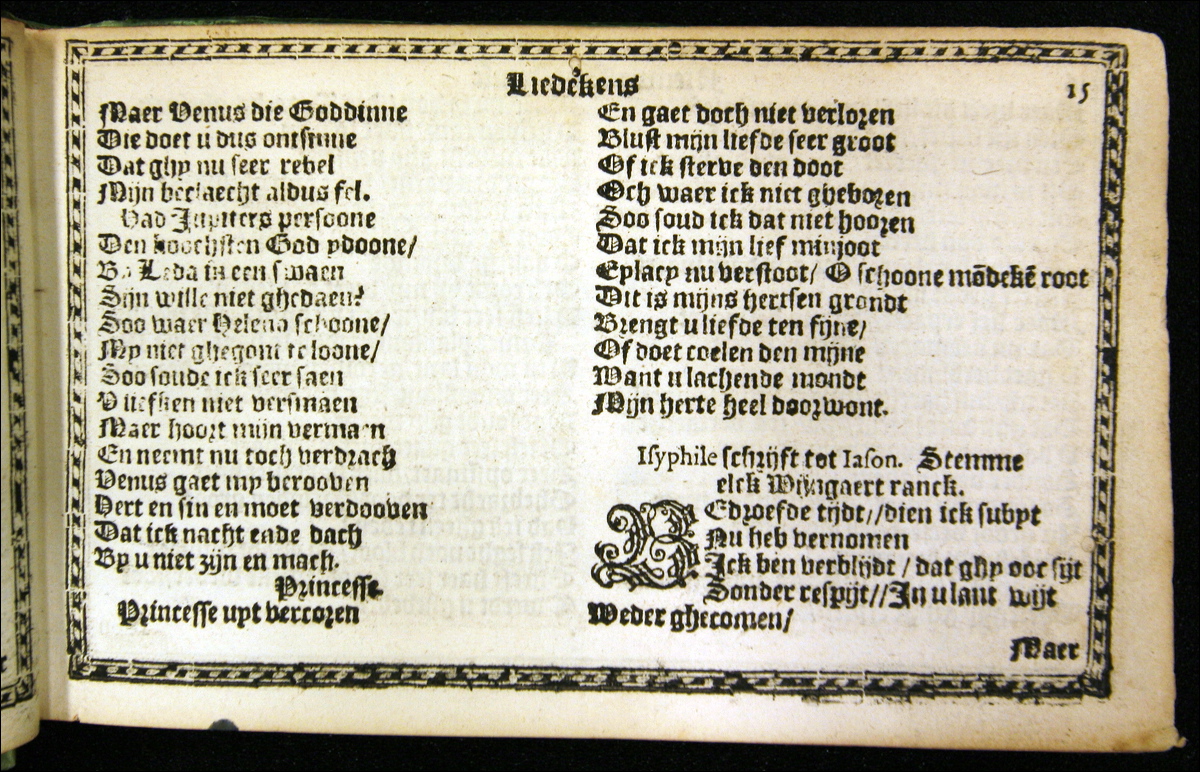 Liedekens
15
Maer Venus die Goddinne
Die doet u dus ontsinne
Dat ghy nu seer rebel
Mijn beclaecht aldus fel.
Had Jupiters persoone
Den hoochsten God ydoone/
By Leda in een swaen
Sijn wille niet ghedaen?
Soo waer Helena schoone/
My niet ghegont te loone/
Soo soude ick seer saen
U liefken niet versmaen
Maer hoort mijn vermaen
En neemt nu toch verdrach
Venus gaet my berooven
Hert en sin en moet verdooven
Dat ick nacht ende dach
By u niet zijn en mach.
Princesse.
Princesse uyt vercoren
En gaet doch niet verloren
Blust mijn liefde seer groot
Of ick sterve den doot
Och waer ick niet gheboren
Soo soud ick dat niet hooren
Dat ick mijn lief minjoot
Eylacy nu verstoot/ O schoone mōdekē root
Dit is mijns hertsen grondt
Brengt u liefde ten fijne/
Of doet coelen den mijne
Want u lachende mondt
Mijn herte heel doorwont.
Isyphile schrijft tot Iason. Stemme
elck Wijngaert ranck.
BEdroefde tijdt//dien ick subyt
Nu heb vernomen
Ick ben verblijdt / dat ghy ooc sijt
Sonder respijt//In u lant wijt
Weder ghecomen/
Maer